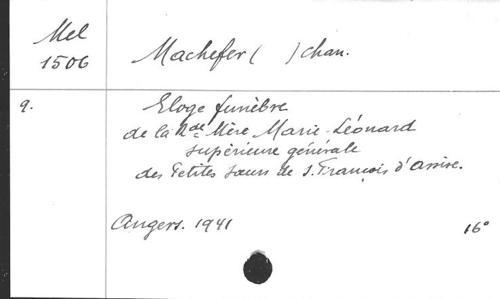 Mel
1506
Machefer ( ) chan.
9.
Eloge funèbre
de la Rde Mère Marie-Léonard
supérieure générale
des Petites Sœurs de S. François d'Assise.
Angers. 1941
16°